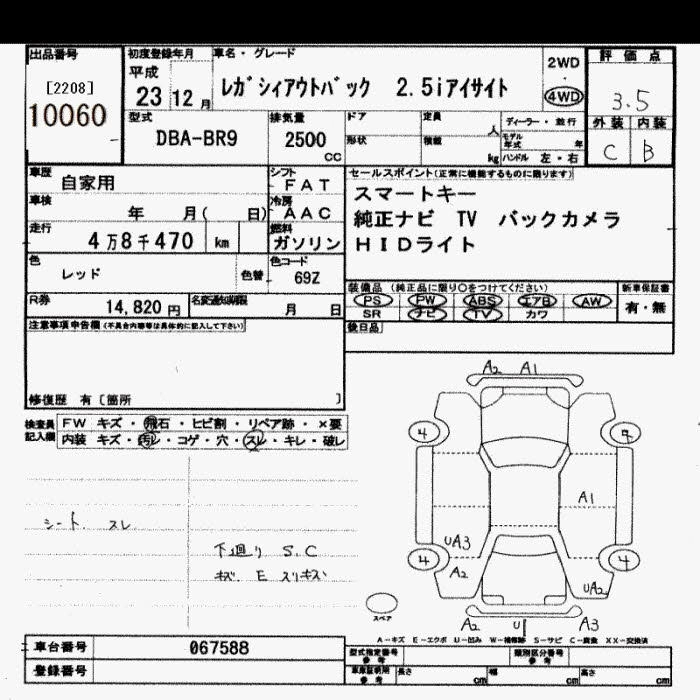 出品番号
[2208]
10060
初度登録年月
平成
23 12 月
車名・グレード
レガシィアウトバック 2.5iアイサイト
2WD
・
4WD
評価点
3.5
外装 内装
C B
型式
DBA-BR9
排気量
2500
CC
ドア
定員
人
形状
積載
kg
ディーラー・並行
モデル年式 年
ハンドル 左・右
車歴
自家用
シフト
FAT
車検
年 月( 日)
冷房
AAC
走行
4万8千470 km
燃料
ガソリン
色
レッド
色替
色コード
69Z
R券
14,820 円
名変通知期限
月 日
セールスポイント(正常に機能するものに限ります)
スマートキー
純正ナビ TV バックカメラ
HIDライト
装備品 (純正品に限り○をつけてください)
PS PW ABS エアB AW
SR ナビ TV カワ
新車保証書
有・無
後日品
注意事項申告欄(不具合内容等は具体的に記入して下さい)
修復歴 有〔箇所 〕
検査員記入欄
FW キズ・飛石・ヒビ割・リペア跡・×要
内装 キズ・汚レ・コゲ・穴・スレ・キレ・破レ
シート スレ
下廻り S.C
キズ E スリキズ
A2 A1
4
A1
UA3
A2
4 4
UA2
A2 U A3
スペア
A-キズ E-エクボ U-凹み W-補修跡 S-サビ C-腐食 XX-交換済
車台番号
067588
登録番号
型式指定番号
参考
類別区分番号
参考
車庫証明用
参考
長さ cm
幅 cm
高さ cm